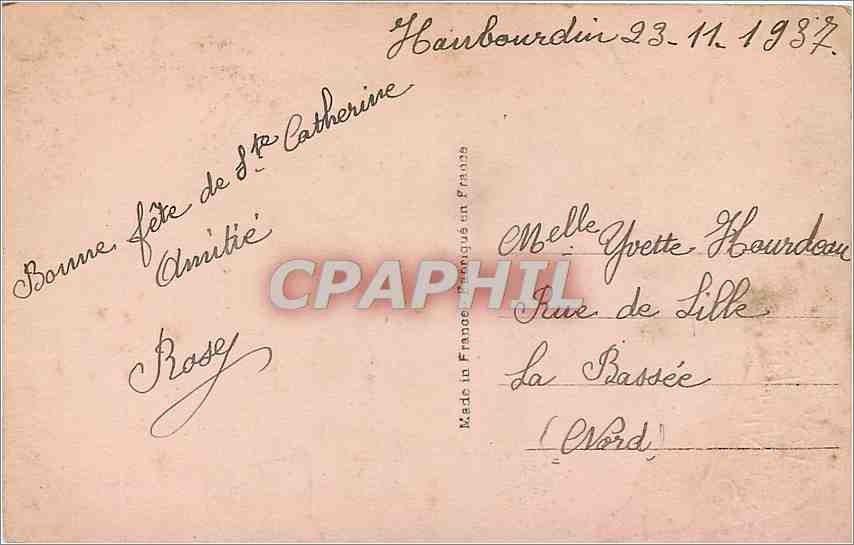 Haubourdin 23-11-1937.
Bonne fête de Ste Catherine
Amitié
Rosey
Made in France - Fabriqué en France
Melle Yvette Hourdeau
Rue de Lille
La Bassée
(Nord)
CPAPHIL